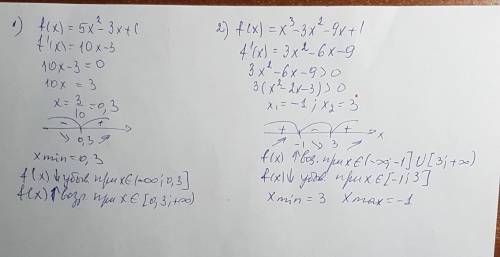 1) f(x) = 5x² - 3x + 1
f'(x) = 10x - 3
10x - 3 = 0
10x = 3
x = 3/10 = 0,3
- + 
0,3
x min = 0,3
f(x) ↓ убыв при x ∈ (-∞; 0,3]
f(x) ↑ возр. при x ∈ [0,3; +∞)
2) f(x) = x³ - 3x² - 9x + 1
f'(x) = 3x² - 6x - 9
3x² - 6x - 9 > 0
3(x² - 2x - 3) > 0
x₁ = -1; x₂ = 3
+ - +
-1 3 x
f(x) ↑ воз. при x ∈ (-∞; -1] U [3; +∞)
f(x) ↓ убыв. при x ∈ [-1; 3]
x min = 3 x max = -1